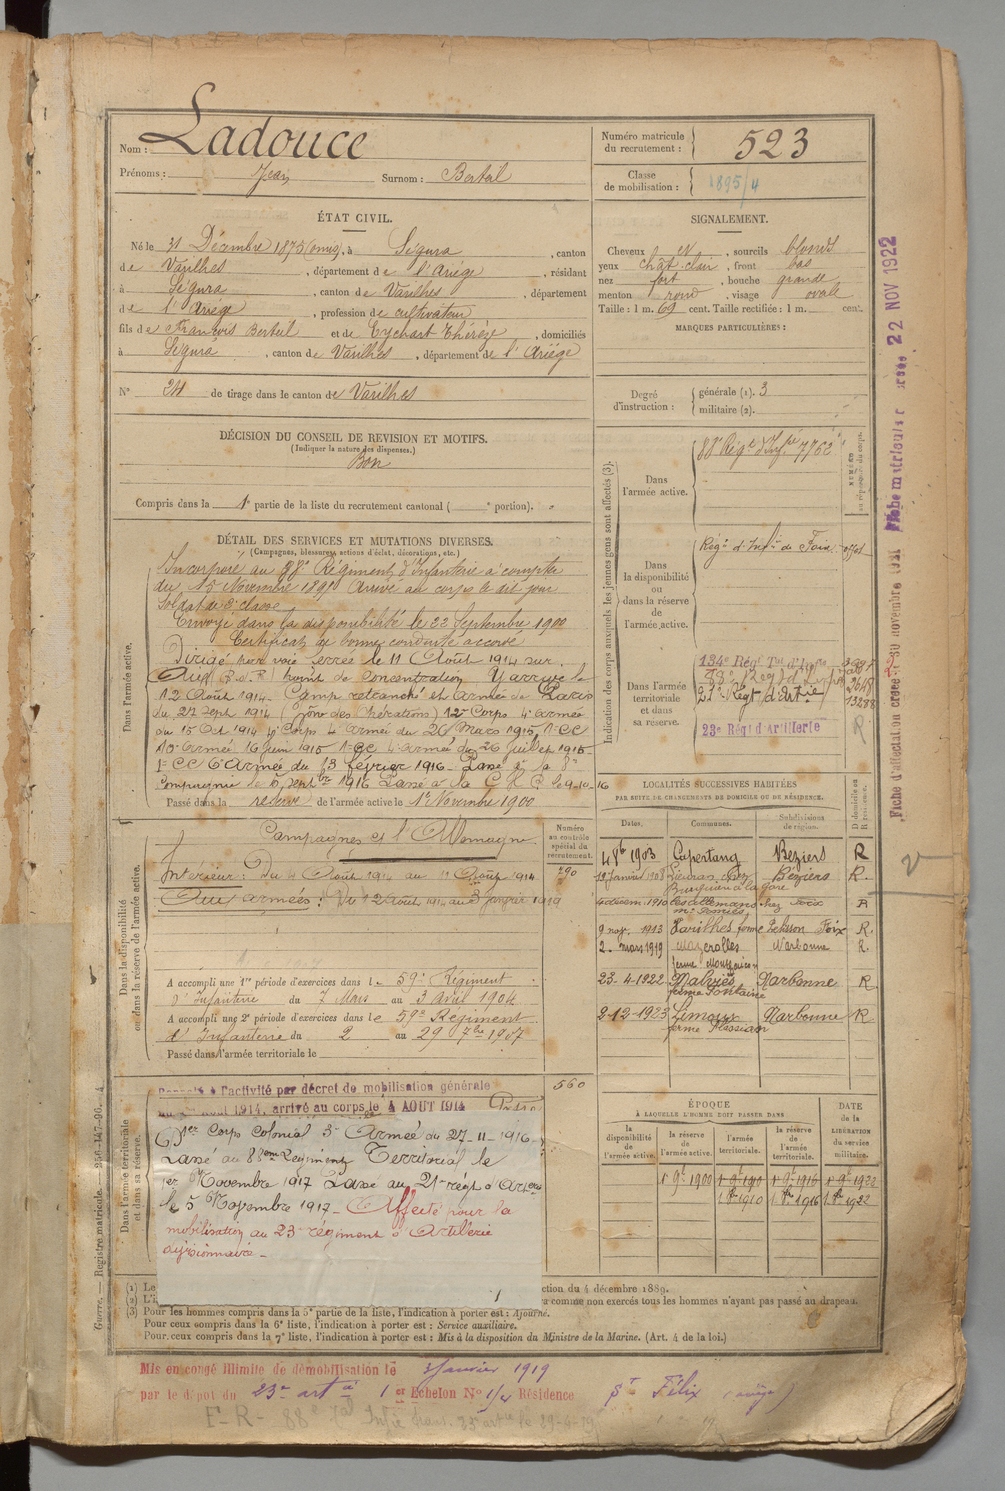 Nom : Ladouce
Prénoms : Jean Surnom : Bertul
Numéro matricule du recrutement : 523
Classe de mobilisation : 1895/4
ÉTAT CIVIL.
Né le 31 Décembre 1875 , à Ségura , canton
de Varilhes , département de l'Ariége , résidant
à Ségura , canton de Varilhes , département
de l'Ariége , profession de cultivateur
fils de François Bertul et de Eychart Thérèze , domiciliés
à Ségura , canton de Varilhes , département de l'Ariége
N° 24 de tirage dans le canton de Varilhes
SIGNALEMENT.
Cheveux et , sourcils blonds
yeux chât. clair , front bas
nez fort , bouche grande
menton rond , visage ovale
Taille : 1 m. 69 cent. Taille rectifiée : 1 m. cent.
MARQUES PARTICULIÈRES :
Degré d'instruction : générale (1). 3
militaire (2).
DÉCISION DU CONSEIL DE REVISION ET MOTIFS.
(Indiquer la nature des dispenses.)
Bon
Compris dans la 1e partie de la liste du recrutement cantonal ( e portion).
DÉTAIL DES SERVICES ET MUTATIONS DIVERSES.
(Campagnes, blessures, actions d'éclat, décorations, etc.)
Dans l'armée active.
Incorporé au 88e Régiment d'Infanterie à compter
du 15 Novembre Arrivé au corps le dit jour
Soldat de 2e classe
Envoyé dans la disponibilité le 22 Septembre 1900
Certificat de bonne conduite accordé
Dirigé par voie ferrée le 11 Août 1914 sur
point de concentration. Y arrive le
12 Août 1914. Camp retranché et Armée de Paris
du 27 Sept 1914 (Zône des Opérations) 12e Corps 4e armée
du 15 Oct 1914 Corps 4 armée du 26 Mars 1915, 1er CC
10e armée 16 Juin 1915 1er CC 4e armée du 26 Juillet 1915
1er CC 6e Armée du 13 février 1916 Passé à la 8e
Compagnie le 5 Septbre 1916 Passé à la le 9-10-16
Passé dans la réserve de l'armée active le 1er Novembre 1900
Indication des corps auxquels les jeunes gens sont affectés (3).
NUMÉRO au répertoire du corps.
Dans l'armée active. 88e Régt d'Infie 7762
Dans la disponibilité ou dans la réserve de l'armée active. Régt d'Infie de Foix
Dans l'armée territoriale et dans sa réserve.
134e Régt Tal d'Infie
88e Régt d'Infie
21e Régt d'Artie 13288
23e Régt d'Artillerie R
LOCALITÉS SUCCESSIVES HABITÉES
PAR SUITE DE CHANGEMENTS DE DOMICILE OU DE RÉSIDENCE.
Dates. Communes. Subdivisions de région. D domicile ou R résidence.
4 8b 1903 Capestang Béziers R
19 Janvier 1908 Béziers R.
4 décem. 1910 Foix R
9 nov. 1913 Varilhes ferme Foix R.
2 mars 1919 Mazerolles Narbonne R.
23-4-1922 Malviès ferme Fontaine Narbonne R
2-12-1923 Limoux ferme Narbonne R
Dans la disponibilité ou dans la réserve de l'armée active.
Campagnes et l'Allemagne
Intérieur : Du 4 Août 1914 au 11 Août 1914
Aux armées : Du 12 Août 1914 au 3 janvier 1919
Numéro au contrôle spécial du recrutement.
290
A accompli une 1re période d'exercices dans le 59e Régiment
d'Infanterie du 7 Mars au 3 Avril 1904
A accompli une 2e période d'exercices dans le 59e Régiment
d'Infanterie du 2 au 29 7bre 1907
Passé dans l'armée territoriale le
560
Dans l'armée territoriale et dans sa réserve.
Rappelé à l'activité par décret de mobilisation générale
août 1914, arrivé au corps le 4 AOUT 1914
1er Corps Colonial 3e Armée du 27-11-1916.
Passé au 88eme Régiment Territorial le
1er Novembre 1917 Passé au 21e régt d'Artie
le 5 Novembre 1917 - Affecté pour la
mobilisation au 23e régiment d'Artillerie
divisionnaire -
ÉPOQUE
À LAQUELLE L'HOMME DOIT PASSER DANS
la disponibilité de l'armée active. la réserve de l'armée active. l'armée territoriale. la réserve de l'armée territoriale.
DATE de la LIBÉRATION du service militaire.
1er 9e 1900 1er 9e 1910 1er 9e 1916 1er 9e 1922
1 8re 1910 1 8re 1916 1 8re 1922
(1) Le
(2) L'i
ction du 4 décembre 1889.
a comme non exercés tous les hommes n'ayant pas passé au drapeau.
(3) Pour les hommes compris dans la 5e partie de la liste, l'indication à porter est : Ajourné.
Pour ceux compris dans la 6e liste, l'indication à porter est : Service auxiliaire.
Pour ceux compris dans la 7e liste, l'indication à porter est : Mis à la disposition du Ministre de la Marine. (Art. 4 de la loi.)
Guerre. — Registre matricule. — 256-147-96. 4
Mis en congé illimité de démobilisation le 3 Janvier 1919
par le dépot du 23e art ie 1er Echelon N° 1/4 Résidence St Félix (ariège)
F-R- 88e Tal Infie 23e artie le 29-4-19
Fiche d'affectation créée le 30 novembre 1921
Fiche matriculaire créée 22 NOV 1922